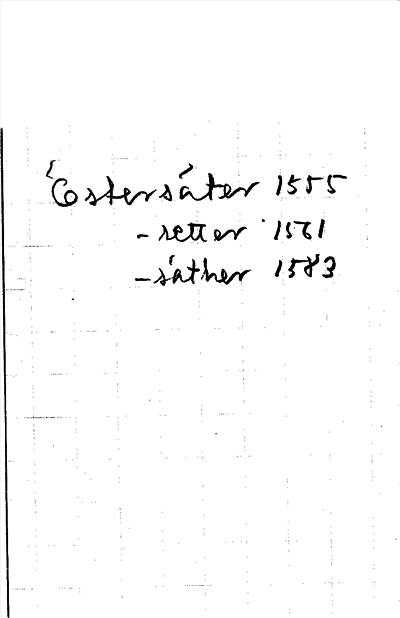 Östersäter 1555
- setter 1561
- säther 1583